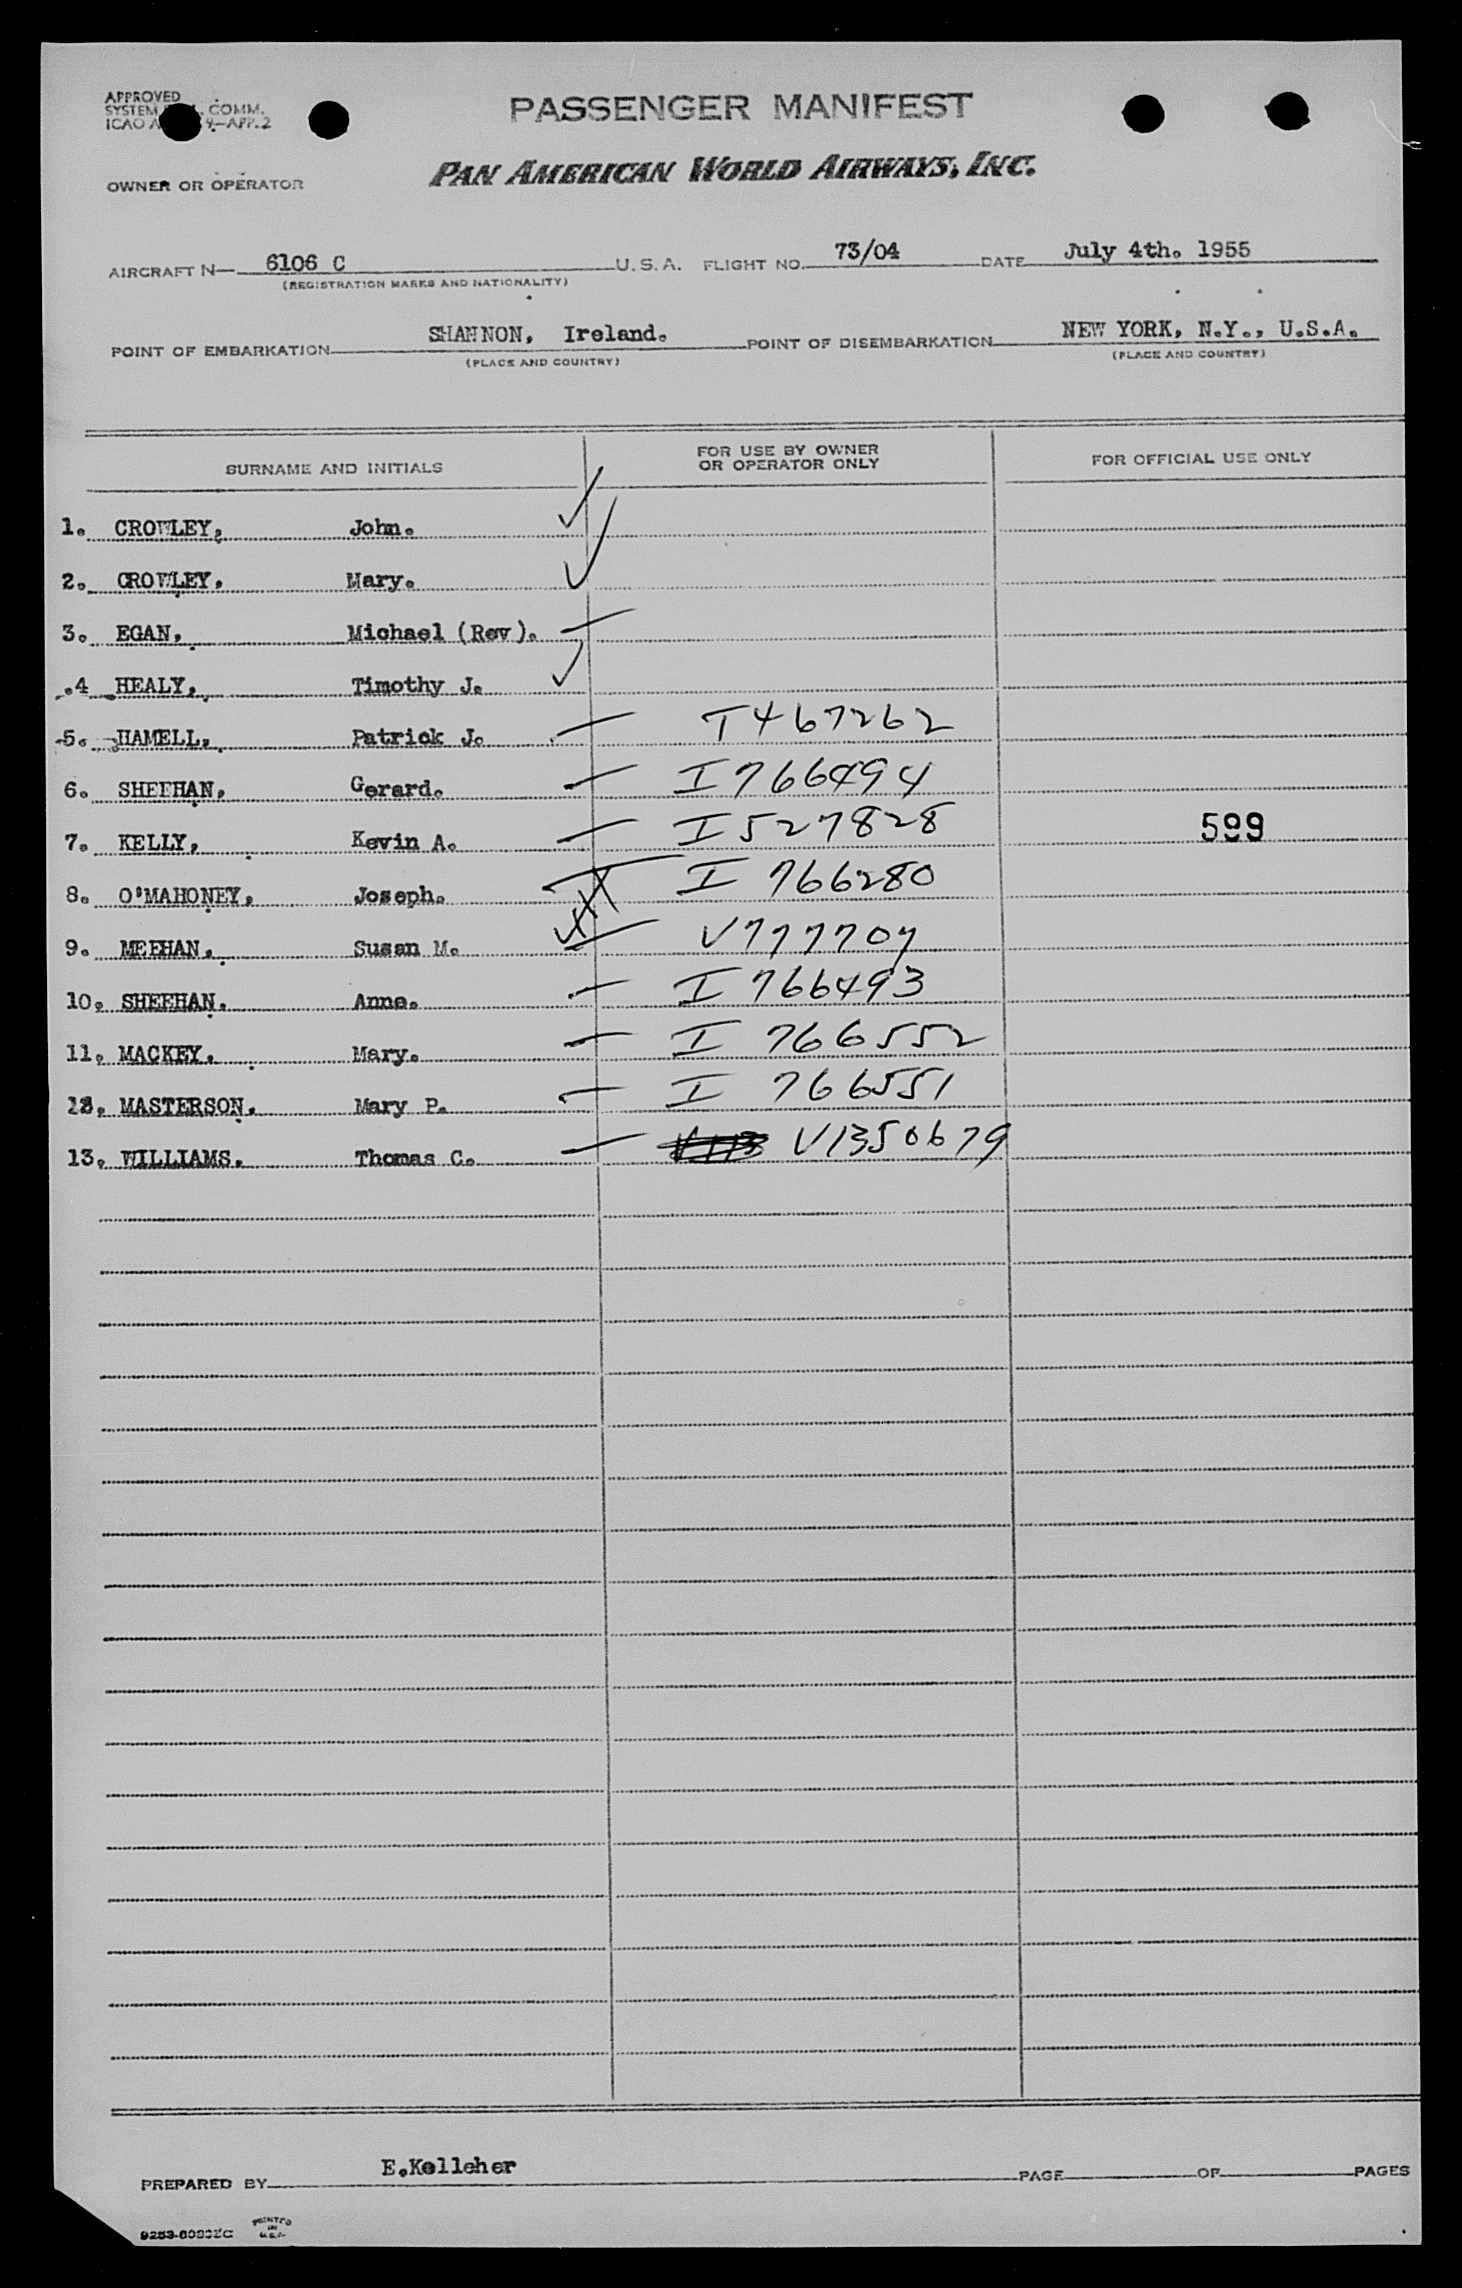 APPROVED
SYSTEM COMM.
ICAO A 9-APP.2
PASSENGER MANIFEST
OWNER OR OPERATOR PAN AMERICAN WORLD AIRWAYS, INC.
AIRCRAFT N— 6106 C U.S.A. FLIGHT NO. 73/04 DATE July 4th. 1955
(REGISTRATION MARKS AND NATIONALITY)
POINT OF EMBARKATION SHANNON, Ireland. POINT OF DISEMBARKATION NEW YORK, N.Y., U.S.A.
(PLACE AND COUNTRY) (PLACE AND COUNTRY)
SURNAME AND INITIALS FOR USE BY OWNER OR OPERATOR ONLY FOR OFFICIAL USE ONLY
1. CROWLEY, John.
2. CROWLEY. Mary.
3. EGAN. Michael (Rev).
.4 HEALY. Timothy J.
5. HAMELL. Patrick J. T467262
6. SHEEHAN. Gerard. I 766494
7. KELLY. Kevin A. I 527828 599
8. O'MAHONEY. Joseph. I 766280
9. MEEHAN. Susan M. V777707
10. SHEEHAN. Anne. I 766493
11. MACKEY. Mary. I 766552
12. MASTERSON. Mary P. I 766551
13. WILLIAMS. Thomas C. V1350679
PREPARED BY E.Kelleher PAGE OF PAGES
PRINTED IN U.S.A.